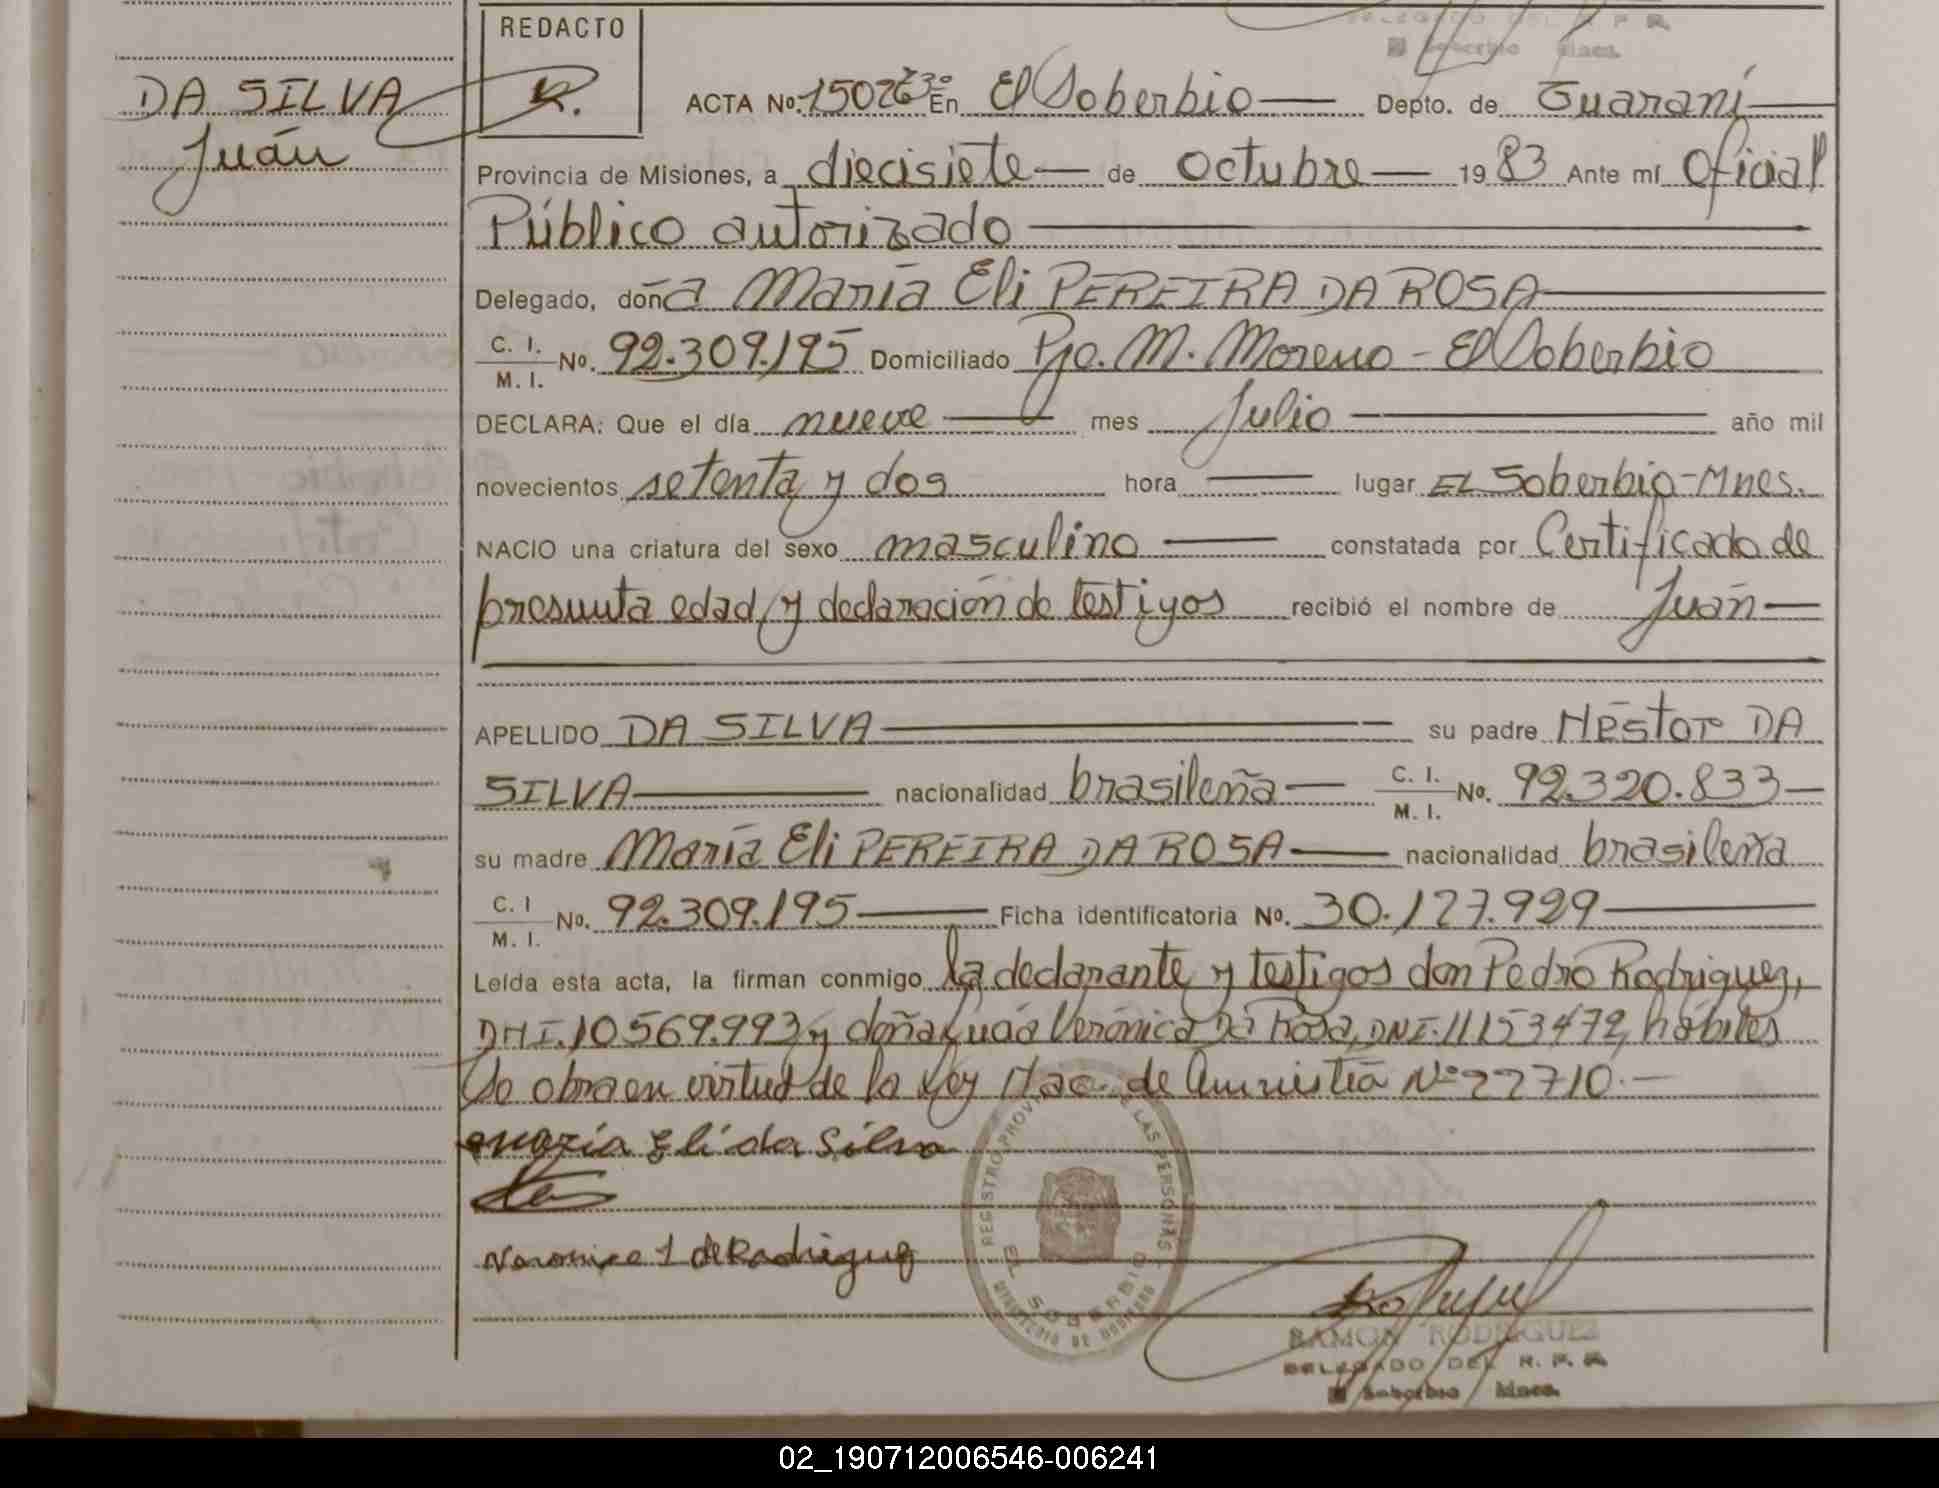 REDACTO
R.
DELEGADO DEL R. P. R.
El Soberbio Mnes.
DA SILVA
Juán
ACTA No. En El Soberbio Depto. de Guaraní
Provincia de Misiones, a diecisiete de Octubre 19 83 Ante mí Oficial
Público autorizado
Delegado, doña María Eli PEREIRA DA ROSA
C. I. M. I. No. 92.309.195 Domiciliado Pje. M. Moreno - El Soberbio
DECLARA: Que el día nueve mes Julio año mil
novecientos setenta y dos hora lugar EL Soberbio-Mnes.
NACIO una criatura del sexo masculino constatada por Certificado de
presunta edad y declaración de testigos recibió el nombre de Juán
APELLIDO DA SILVA su padre Héstor DA
SILVA nacionalidad brasileña C. I. M. I. No. 92.320.833
su madre María Eli PEREIRA DA ROSA nacionalidad brasileña
C. I M. I. No. 92.309.195 Ficha identificatoria No. 30.127.929
Leída esta acta, la firman conmigo la declarante y testigos don Pedro Rodriguez,
DNI. 10569.993 y doña Verónica Da Rosa, DNI. 11153472, hábiles
Se obra en virtud de la Ley Nac. de Amnistía Nº 22710.-
maría Eli da Silva
de Rodriguez
REGISTRO PROV. DE LAS PERSONAS
EL SOBERBIO
MINISTERIO DE GOBIERNO
RAMON RODRIGUEZ
DELEGADO DEL R. P. R.
El Soberbio Mnes.
02_190712006546-006241